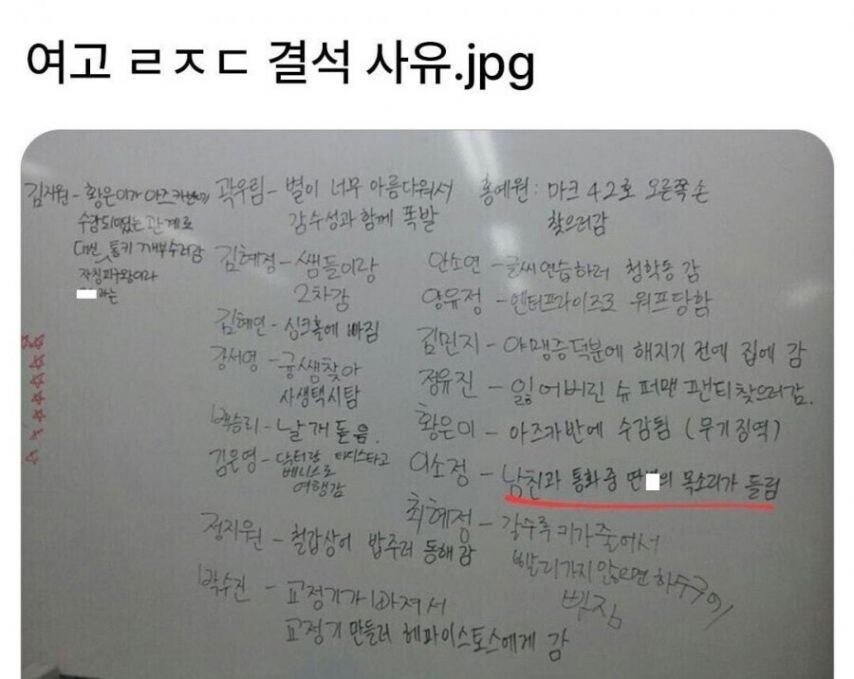 여고 ㄹㅈㄷ 결석 사유.jpg
김지원 - 황은이가 아즈카반에
수감되었는 관계로
대신 통키 깨부수러감
자칭피구왕이라
라는
곽우림 - 별이 너무 아름다워서
감수성과 함께 폭발
김혜정 - 쌤들이랑
2차감
김혜연 - 싱크홀에 빠짐
강서영 - 궁쌤찾아
사생택시탐
백승리 - 날개 돋음.
김은영 - 닥터랑 타디스타고
베니스로
여행감
정지원 - 철갑상어 밥주러 동해감
박수진 - 교정기가 빠져서
교정기 만들러 헤파이스토스에게 감
홍예원 : 마크 42호 오른쪽 손
찾으러감
안소연 - 글씨연습하러 청학동 감
양유정 - 엔터프라이즈로 워프당함
김민지 - 야맹증덕분에 해지기 전에 집에 감
정유진 - 잃어버린 슈퍼맨 팬티찾으러감.
황은미 - 아즈카반에 수감됨 (무기징역)
이소정 - 남친과 통화중 딴 의 목소리가 들림
최혜정 - 갈수록 키가줄어서
빨리가지않으면 하수구에
빠짐